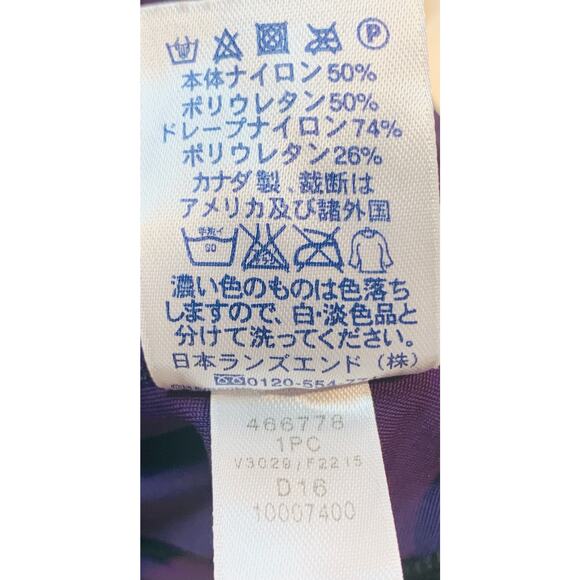 P
本体ナイロン50%
ポリウレタン50%
ドレープナイロン74%
ポリウレタン26%
カナダ製、裁断は
アメリカ及び諸外国
手洗イ
30
濃い色のものは色落ち
しますので、白・淡色品と
分けて洗ってください。
日本ランズエンド(株)
0120-554-
466778
1PC
V3029/F2215
D16
10007400